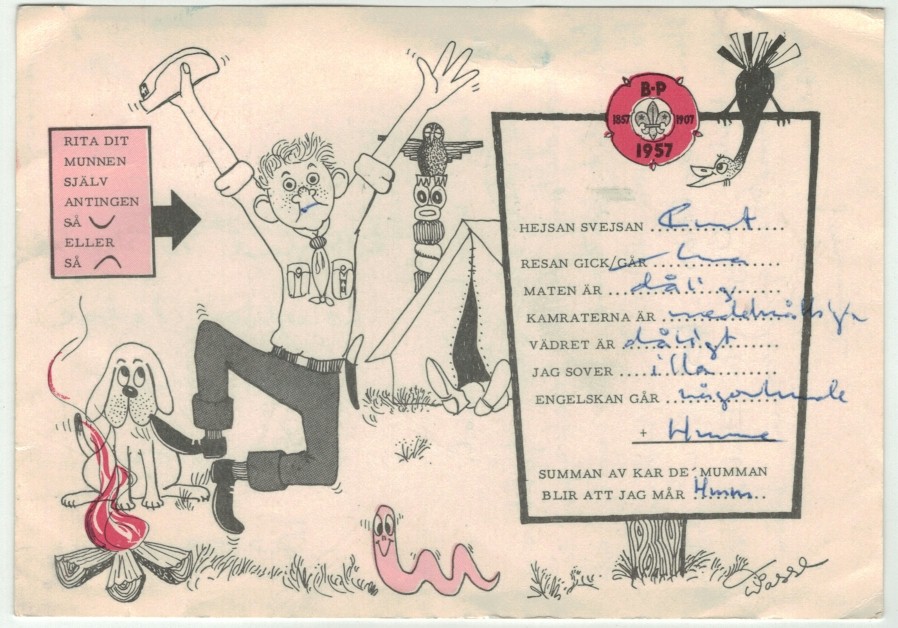 RITA DIT
MUNNEN
SJÄLV
ANTINGEN
SÅ
ELLER
SÅ
B-P
1857 1907
1957
HEJSAN SVEJSAN Kurt
RESAN GICK/GÅR bra
MATEN ÄR dålig
KAMRATERNA ÄR medelmåttiga
VÄDRET ÄR dåligt
JAG SOVER illa
ENGELSKAN GÅR någorlunda
+ Humm
SUMMAN AV KAR DE´MUMMAN
BLIR ATT JAG MÅR Humm
Wasse